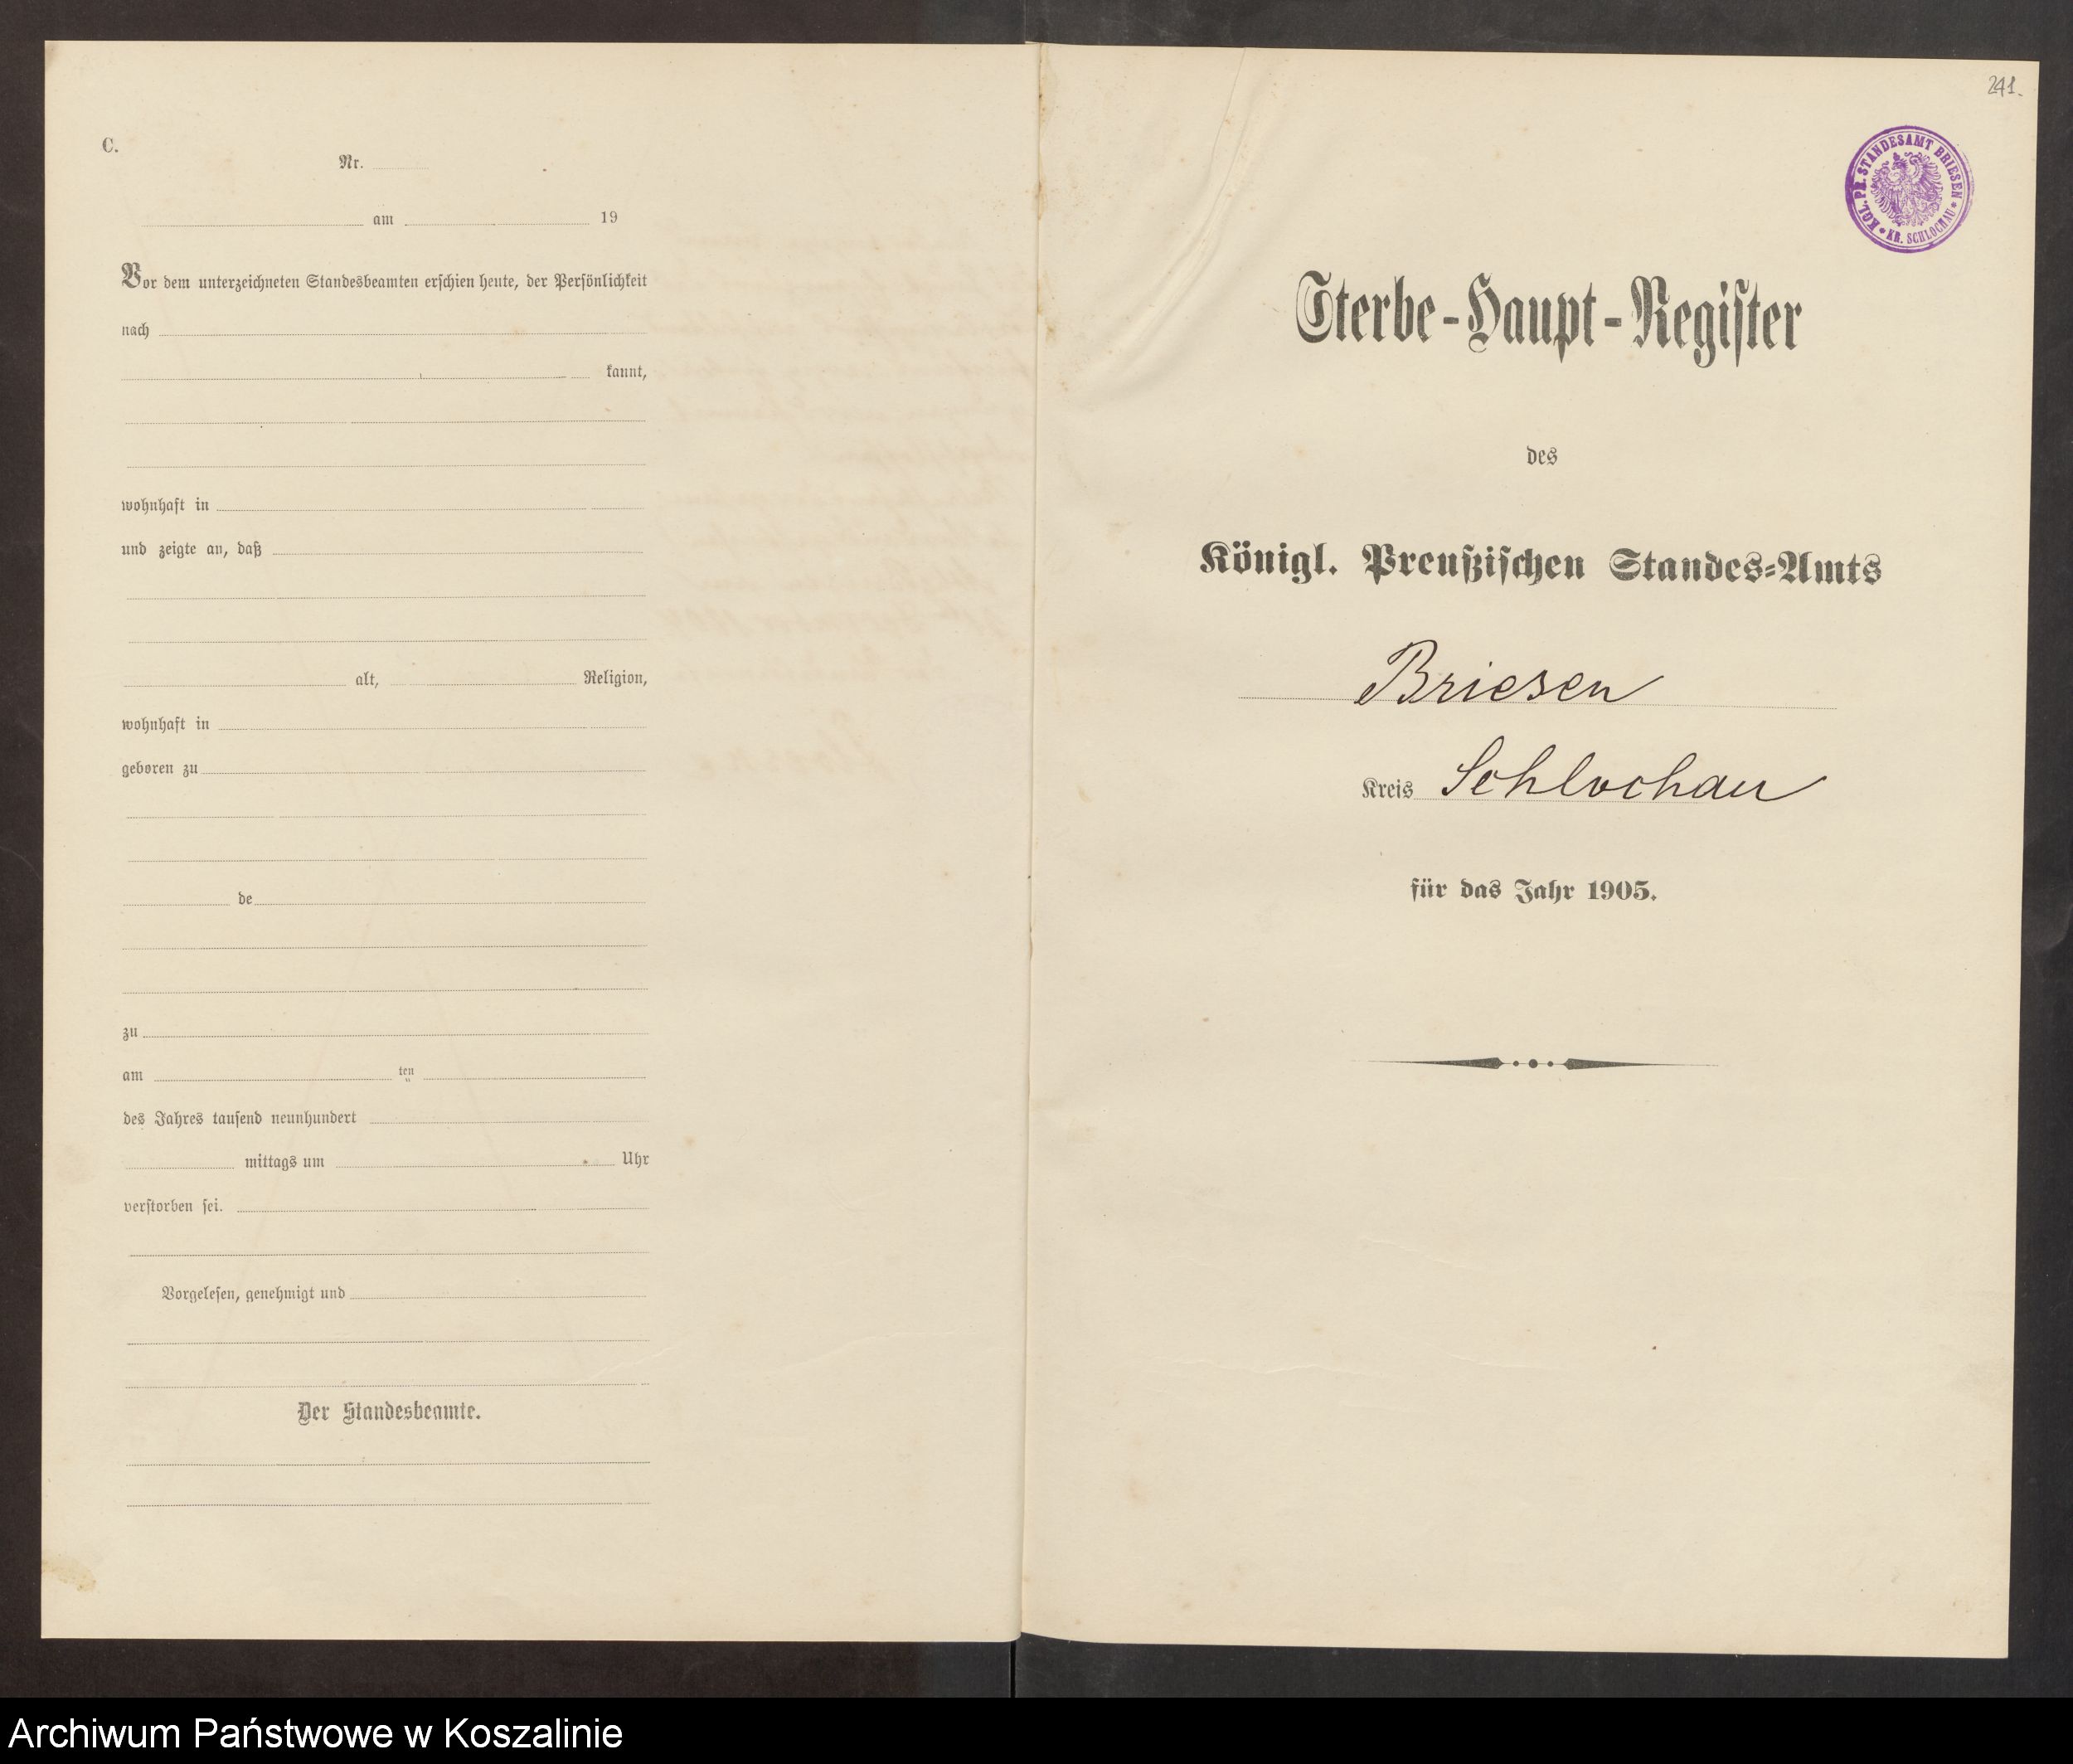 C.
Nr.
am 19
Vor dem unterzeichneten Standesbeamten erschien heute, der Persönlichkeit
nach
kannt,
wohnhaft in
und zeigte an, daß
alt, Religion,
wohnhaft in
geboren zu
de
zu
am ten
des Jahres tausend neunhundert
mittags um Uhr
verstorben sei.
Vorgelesen, genehmigt und
Der Standesbeamte.
241.
KGL. PR. STANDESAMT BRIESEN
KR. SCHLOCHAU
Sterbe-Haupt-Register
des
Königl. Preußischen Standes-Amts
Briesen
Kreis Schlochau
für das Jahr 1905.
Archiwum Państwowe w Koszalinie